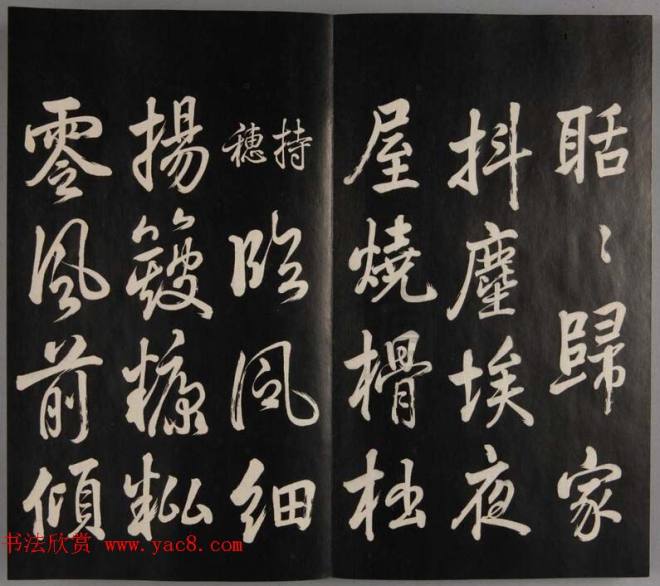 聒〻歸家
抖塵埃夜
屋燒榾柮
持穗臨風細
揚簸糠粃
零風前傾
书法欣赏 www.yac8.com